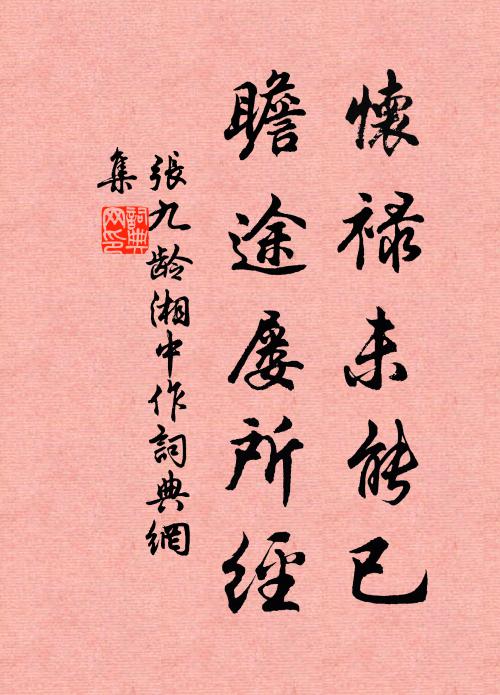 懷祿未能已
瞻途屡所經
張九龄湘中作詞典網
集
詞典网印